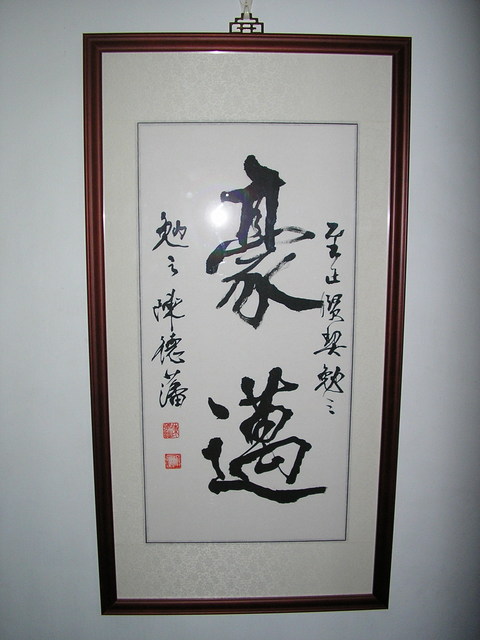 至正賢契勉之
豪邁
勉之 陳德藩